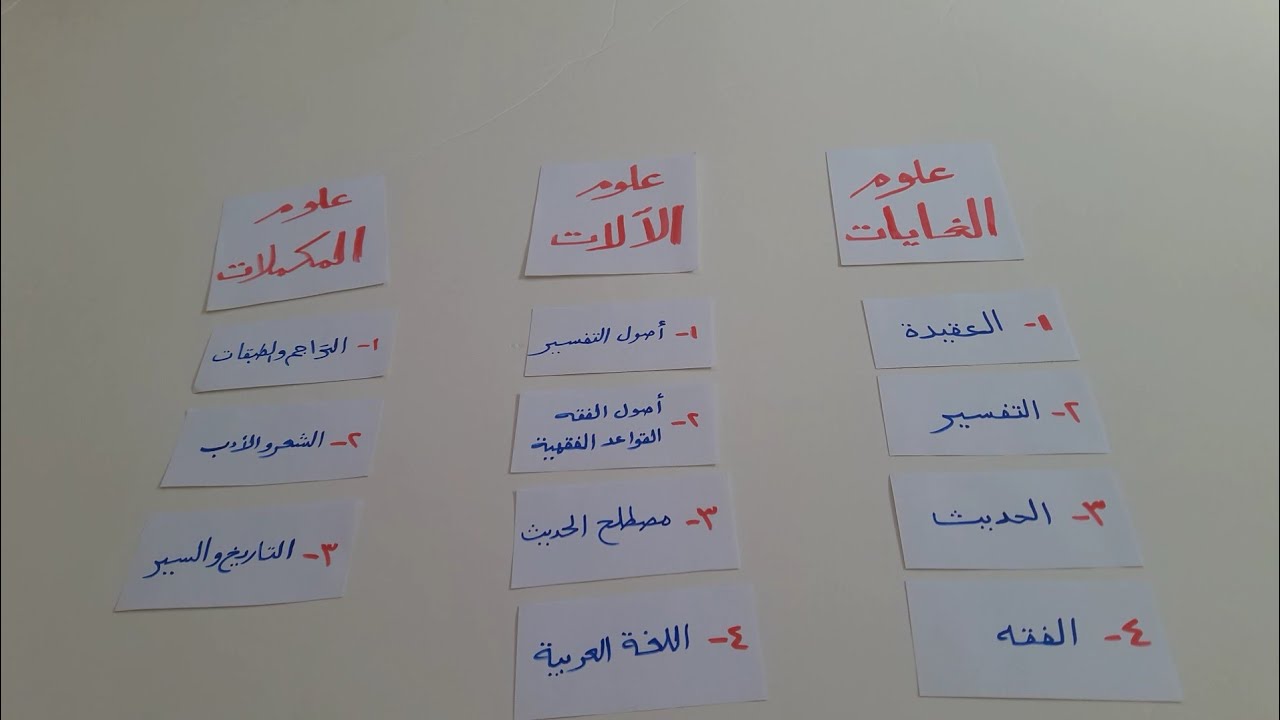 علوم
الغايات
١- العقيدة
٢- التفسير
٣- الحديث
٤- الفقه
علوم
الآلات
١- أصول التفسير
٢- أصول الفقه
القواعد الفقهية
٣- مصطلح الحديث
٤- اللغة العربية
علوم
المكملات
١- التراجم والطبقات
٢- الشعر والأدب
٣- التاريخ والسير